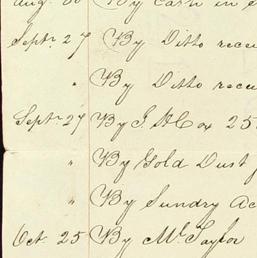 Aug. 30 By Cash in
Septr. 27 By Ditto rece
" By Ditto rece
Septr. 27 By J H Cox 25
" By Gold Dust
" By Sundry Ac
Oct. 25 By Mc. Taylor